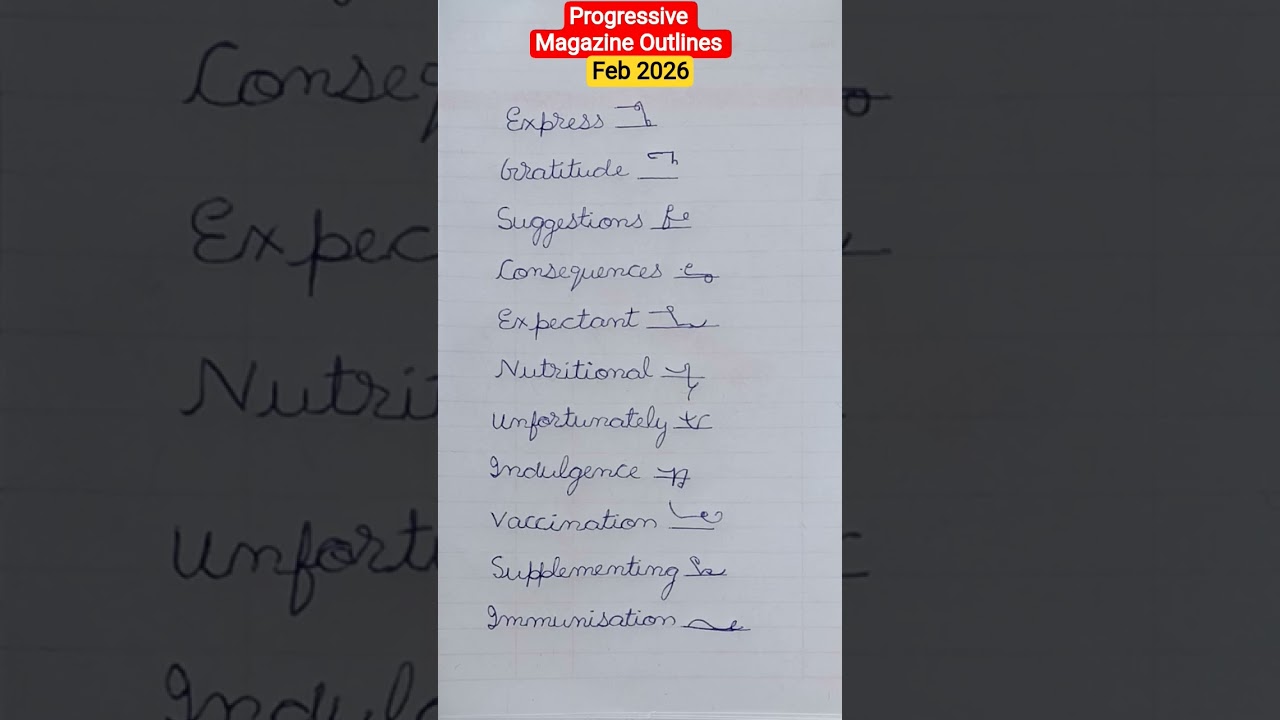 Progressive
Magazine Outlines
Feb 2026
Express
Gratitude
Suggestions
Consequences
Expectant
Nutritional
Unfortunately
Indulgence
Vaccination
Supplementing
Immunisation